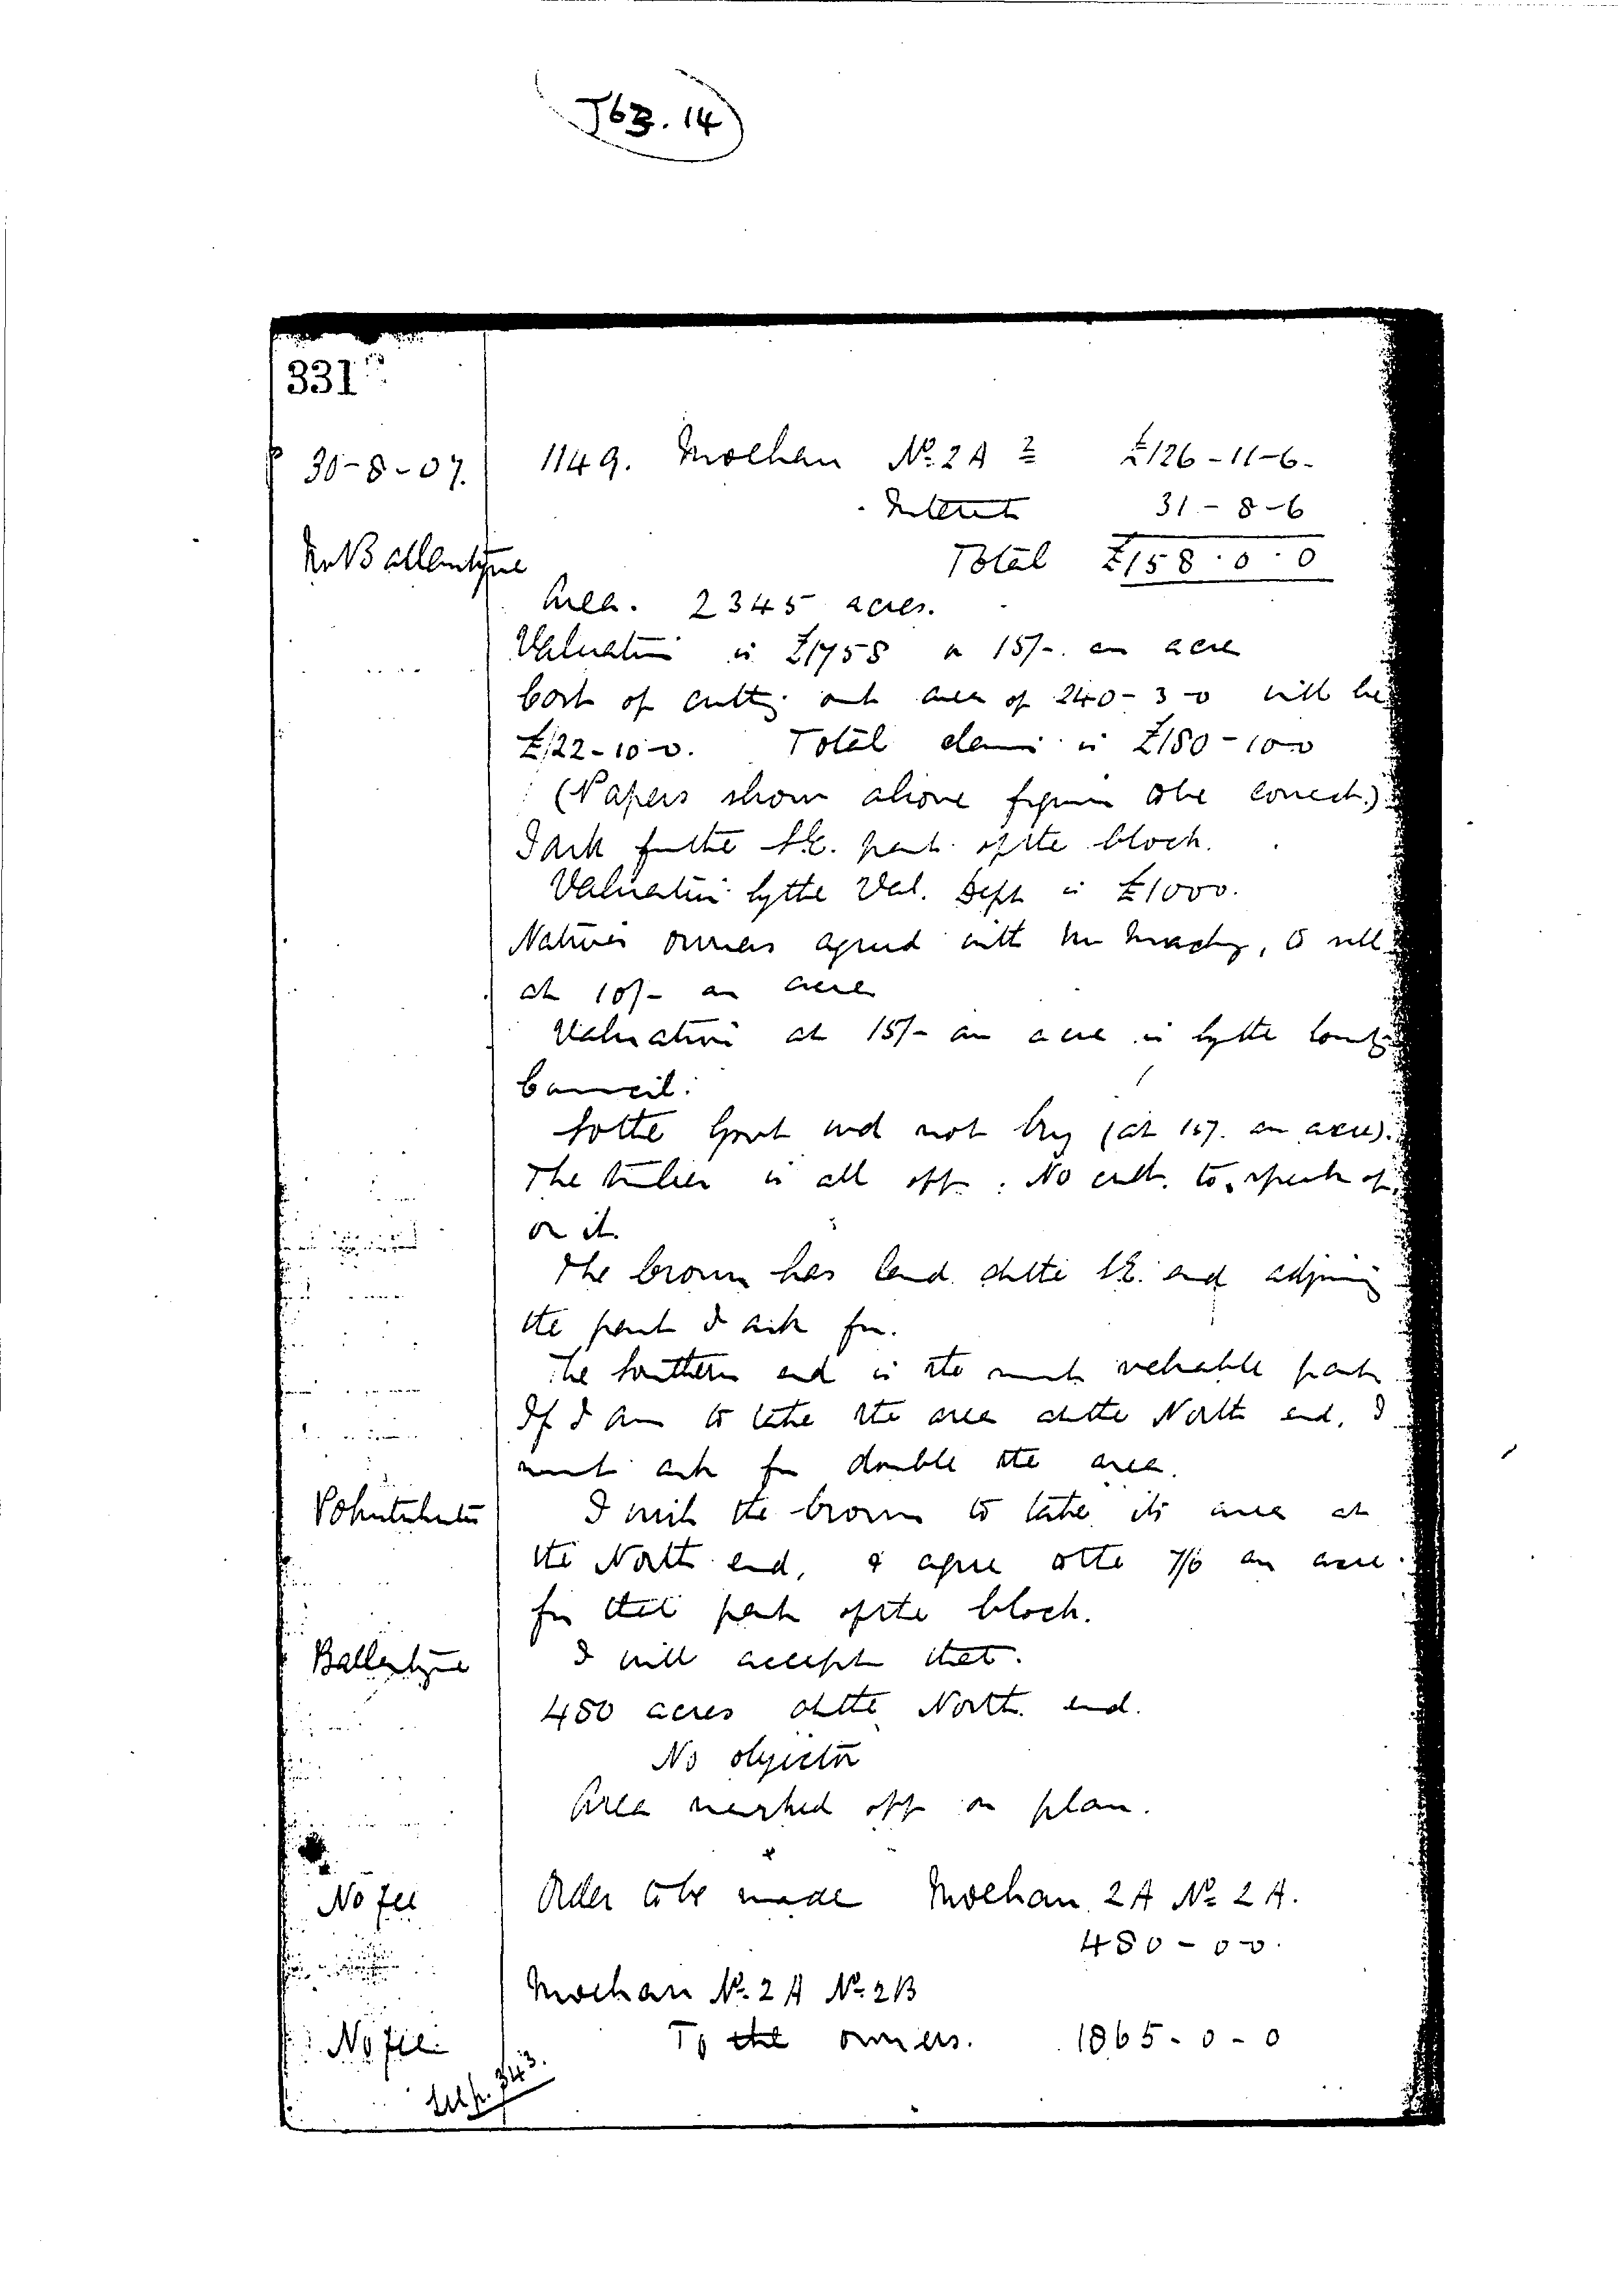 J63.14
331
30-8-07. 1149. Moehau No. 2A 2 £126-11-6.
Interest 31-8-6
Mr Ballantyne Total £158.0.0
Area. 2345 acres.
Valuation is £1758 or 15/- an acre
Cost of cutting out area of 240-3-0 will be
£22-10-0. Total claim is £180-10-0
(Papers shown above figures to be correct.)
I ask for the S.E. part of the block.
Valuation by the Val. Dept is £1000.
Natives owners agreed with Mr to sell
at 10/- an acre
Valuation at 15/- an acre is by the County
Council.
So the Govt wd not buy (at 15/. an acre).
The timber is all off. No cult. to speak of
on it.
The Crown has land at the S.E. end adjoining
the part I ask for.
The Southern end is the most valuable part
If I am to take the area at the North end, I
must ask for double the area.
I wish the Crown to take its area at
the North end, & agree to the 7/6 an acre
for that part of the block.
Ballantyne I will accept that.
480 acres at the North end.
No objector
Area marked off on plan.
No fee Order to be made Moehau 2A No. 2A.
480-0-0.
Moehau No. 2A No. 2B
No fee To the owners. 1865-0-0
See p. 343.